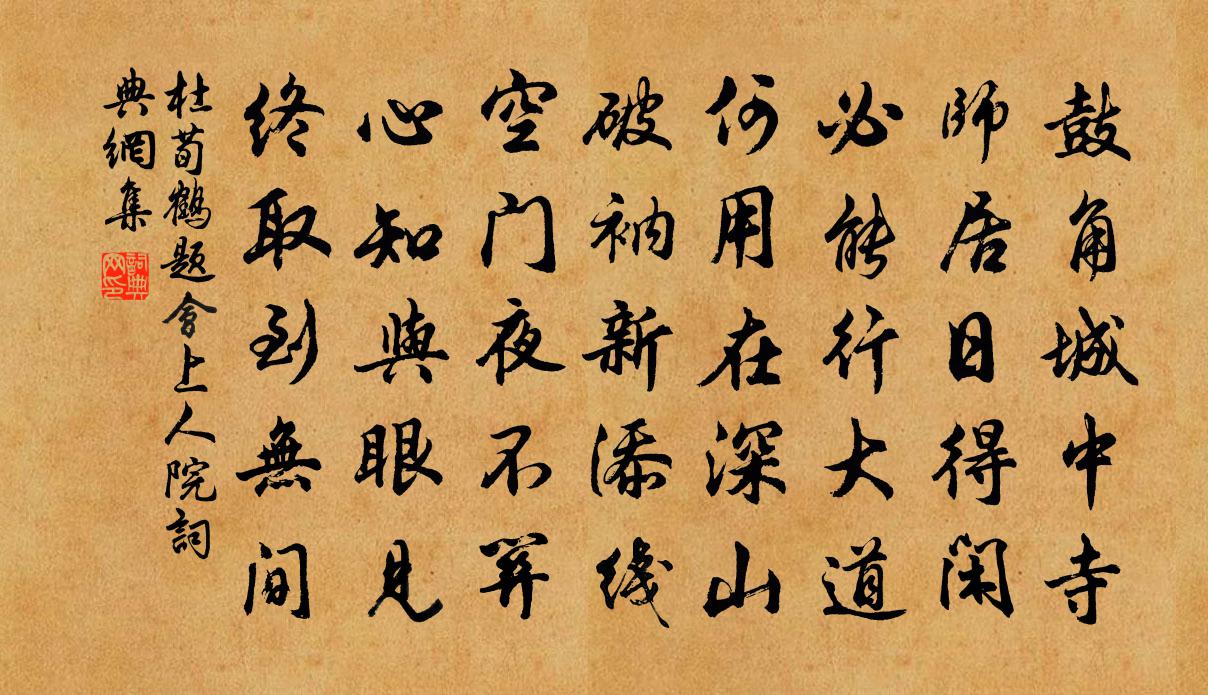 鼓角城中寺
師居日得閑
必能行大道
何用在深山
破衲新添綫
空門夜不關
心知與眼見
終取到無間
杜荀鶴題會上人院詞
典網集
詞典
网印